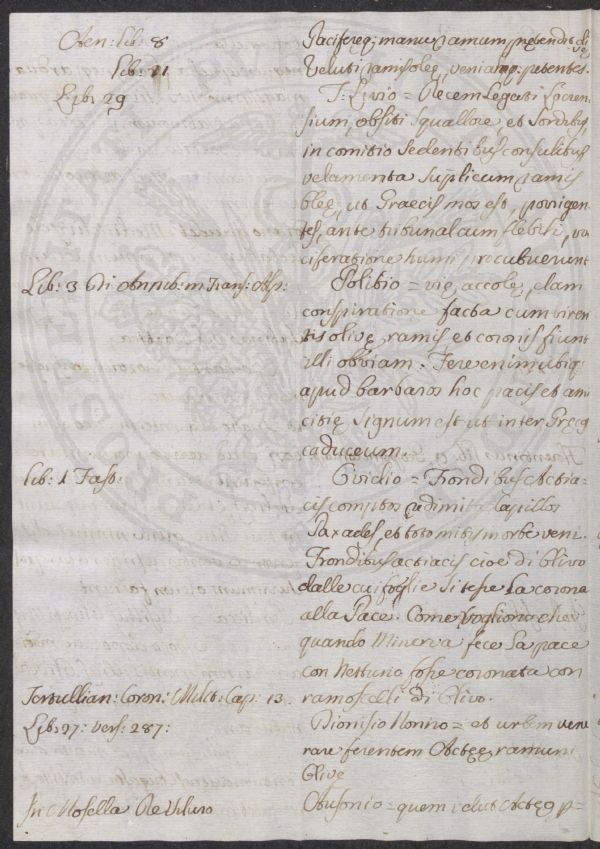 Æen: lib: 8
Pacifereq; manu ramum prętendit olivę
lib: 11
Veluti rami oleę, veniamq. petentes.
Lib: 29
T: Livio = Decem Legati Locren
sium, obsiti squallore, et sordibus
in comitio sedentibus consulibus
velamenta suplicum ramis
oleę, ut Graecis mos est, porrigen
tes, ante tribunal cum flebili, vo
ciferatione humi procubuerunt
Lib: 3 di Annib: in Trans: Alp:
Polibio = vię accolę, clam
conspiratione facta cum viren
tis olivę ramis, et coronis fiunt
illi obviam. Fere enim ubiq;
apud barbaros hoc pacis et ami
citię signum est ut inter Gręcos
caduceum.
lib: 1 Fast:
Ovidio = Frondibus Actia
cis comptos redimita capillos
Pax ades, et toto mitis in orbe veni.
Frondibus actiacis cioe di Olivo
dalle cui foglie si tesse la corona
alla Pace. Come vogliono che
quando Minerva fece la pace
con Nettuno fosse coronata con
Tertullian: Coron: Milit: Cap: 13.
ramoscelli di Olivo.
Lib: 27: vers: 287:
Dionisio Nonno = et urbem vene
rare ferentem Actęę ramum
Olivę
In Mosella De Viburo
Ausonio = quem velut Actęę p=